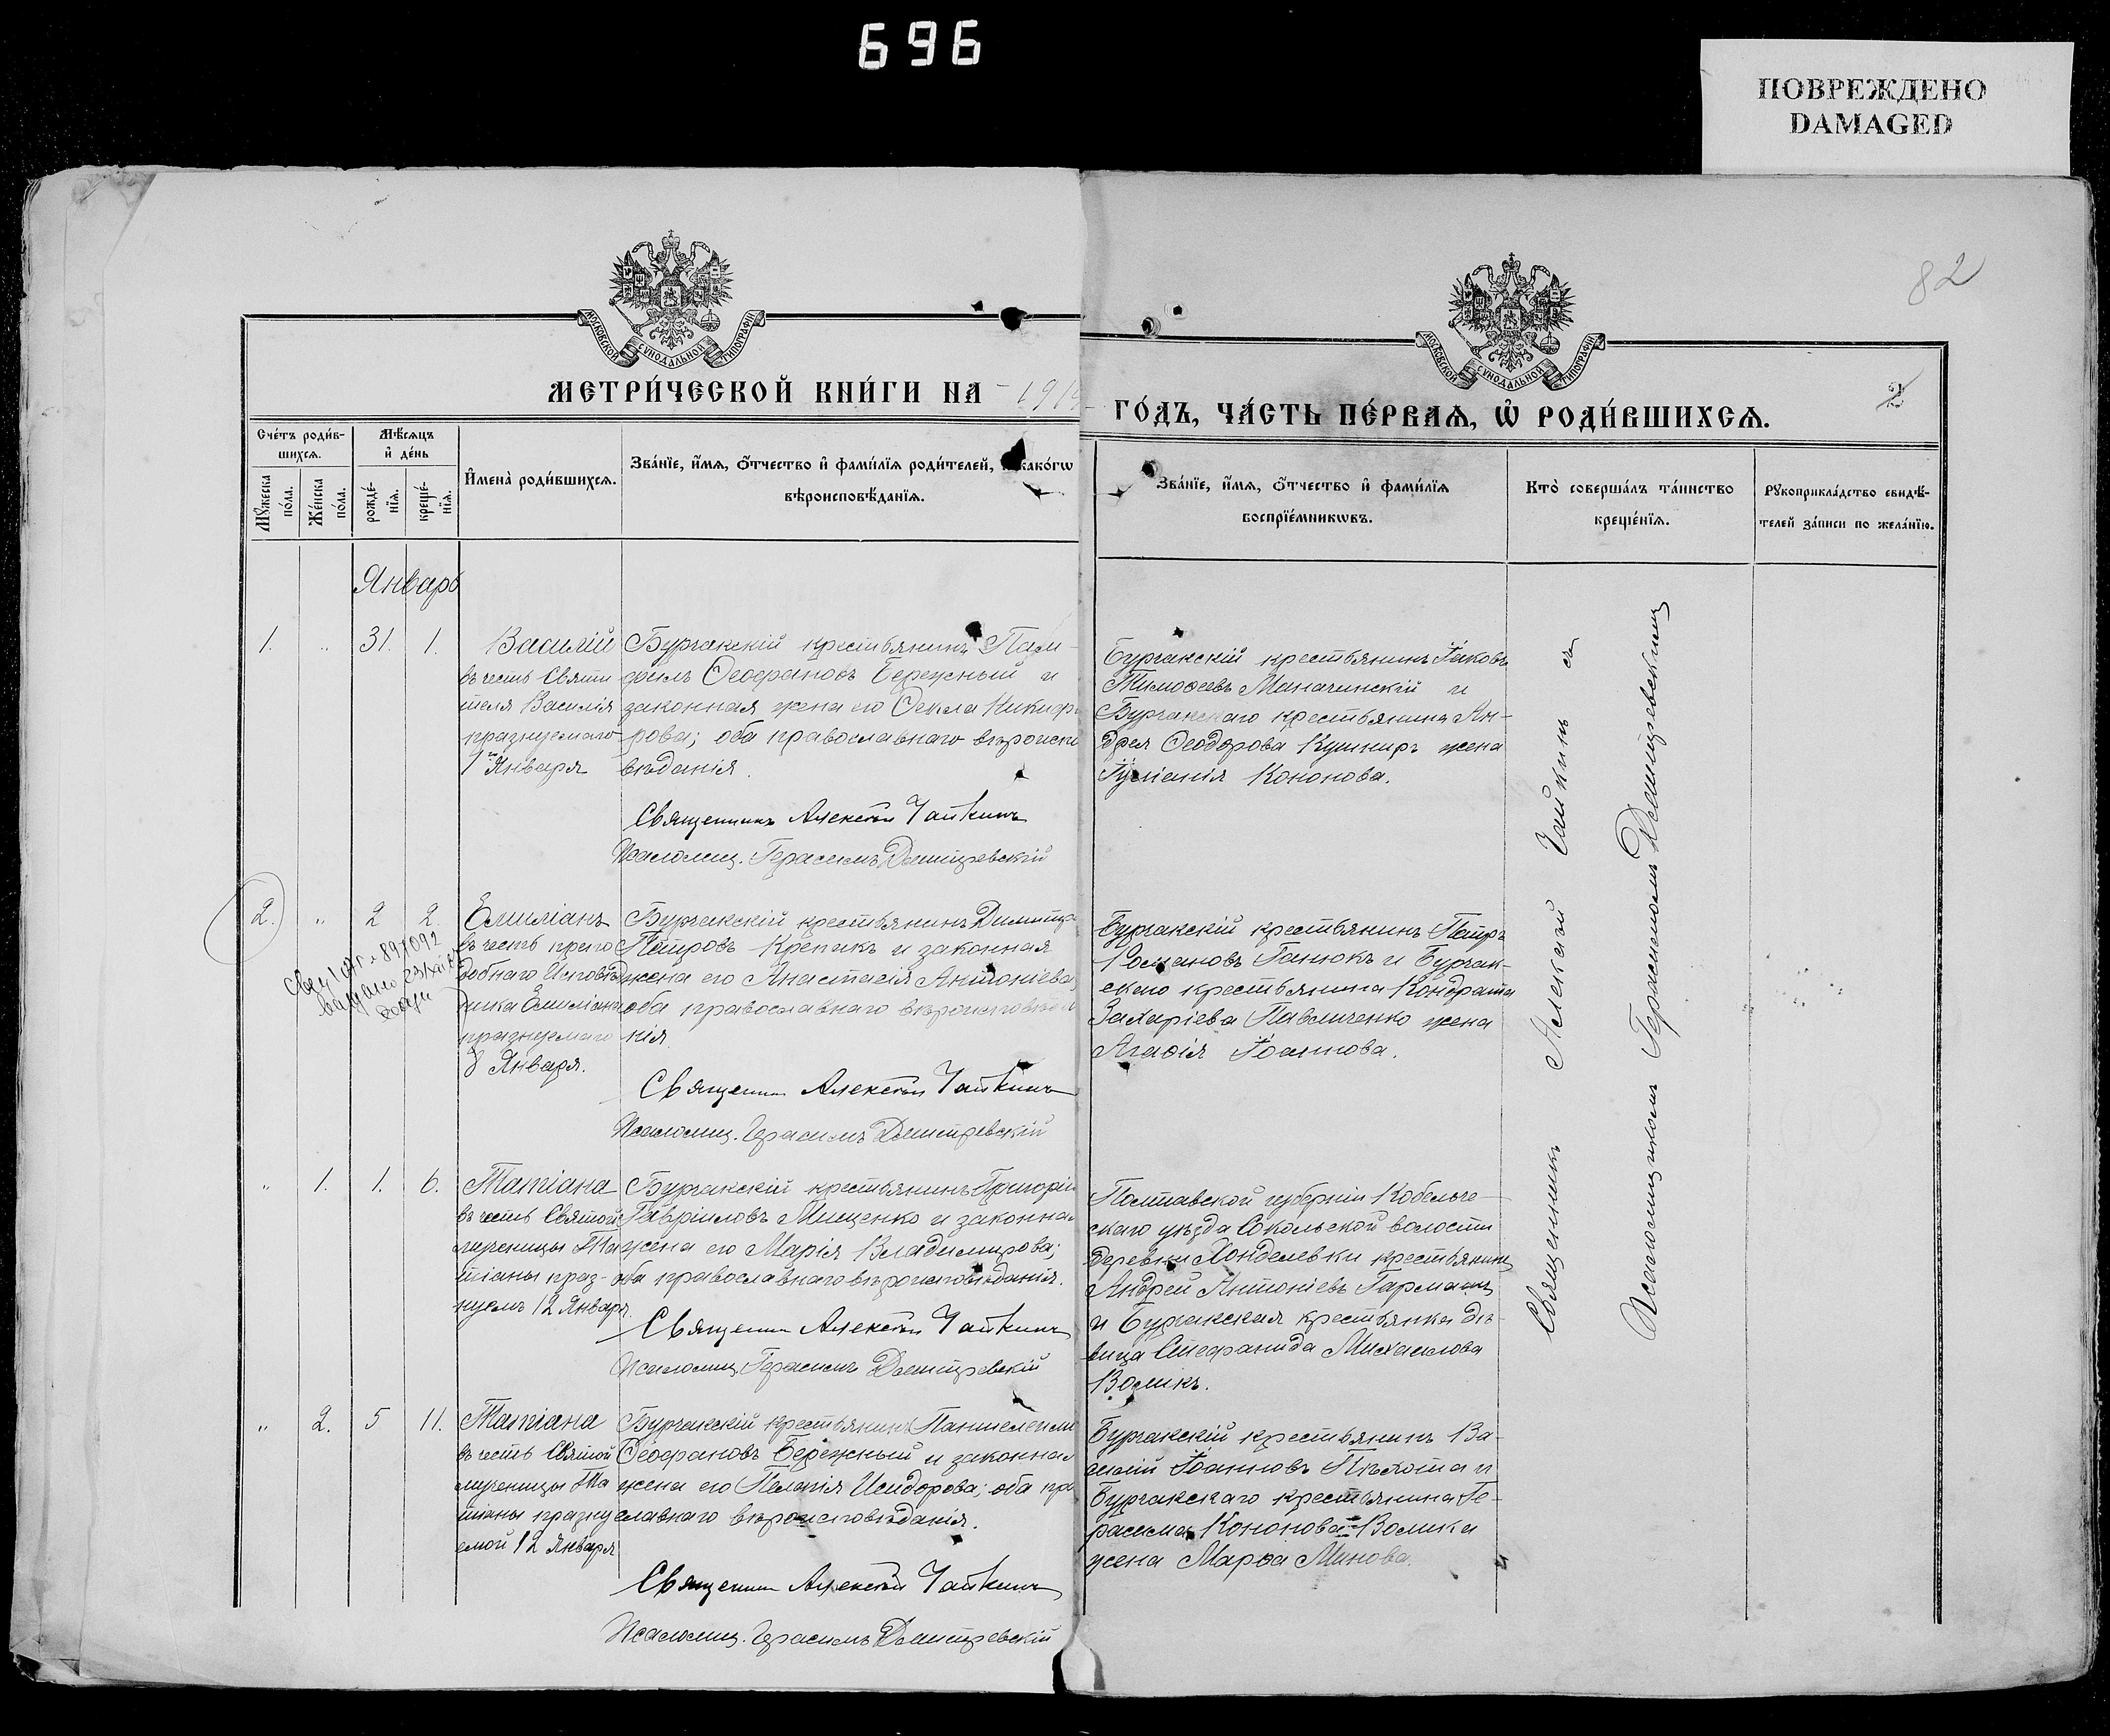 696
ПОВРЕЖДЕНО
DAMAGED
82
МОСКОВСКОЙ СУНОДАЛЬНОЙ ТИПОГРАФІИ
МОСКОВСКОЙ СУНОДАЛЬНОЙ ТИПОГРАФІИ
МЕТРИ́ЧЕСКОЙ КНИ́ГИ НА 191
ГО́ДЪ, ЧА́СТЬ ПЕ́РВАѦ, Ѡ҆ РОДИ́ВШИХСѦ.
2
Сче́тъ роди́в-
шихсѧ.
Мꙋ́жеска по́ла.
Же́нска по́ла.
Мѣ́сѧцъ
и҆ де́нь
рожде́-нїѧ.
креще́-нїѧ.
И҆мена̀ роди́вшихсѧ.
Зва́нїе, и҆́мѧ, ѻ҆́тчество и҆ фами́лїѧ роди́телей, како́гѡ
вѣроисповѣ́данїѧ.
Зва́нїе, и҆́мѧ, ѻ҆́тчество и҆ фами́лїѧ
воспрїе́мникѡвъ.
Кто̀ соверша́лъ та́инство
креще́нїѧ.
Рꙋкоприкла́дство свидѣ́-
телей за́писи по жела́нїю.
Январь
1. „ 31. 1.
Василій
въ честь Святи
теля Василія
празнуемаго
1го Января
Бургакскій крестьянинъ Пам-
филъ Ѳеофановъ Бережный и
законная жена его Ѳекла Никифо
рова; оба православнаго вѣроиспо
вѣданія.
Священникъ Алексѣй Чайкинъ
Псаломщ. Герасимъ Дмитревскій
Бургакскій крестьянинъ Іаковъ
Тимоѳеевъ Маначинскій и
Бургакскаго крестьянина Ан-
дрея Ѳеодорова Кушниръ жена
Іуліанія Кононова.
2. „ 2 2
Емиліанъ
въ честь препо
добнаго Исповѣд
ника Емиліана
празнуемаго
8 Января.
Бургакскій крестьянинъ Димитрі
Петровъ Крепакъ и законная
жена его Анастасія Антоніева;
оба православнаго вѣроисповѣда
нія.
Священник Алексѣй Чайкинъ
Псаломщ. Герасимъ Дмитревскій
Бургакскій крестьянинъ Петръ
Романовъ Ганюкъ и Бургак-
скаго крестьянина Кондрата
Захаріева Павличенко жена
Агаѳія Іоаннова.
„ 1. 1. 6.
Татіана
въ честь Святой
мученицы Та
тіаны праз-
нуемъ 12 Января.
Бургакскій крестьянинъ Григорій
Гавріиловъ Мищенко и законная
жена его Марія Владимирова;
оба православнаго вѣроисповѣданія.
Священник Алексѣй Чайкинъ
Псаломщ. Герасимъ Дмитревскій
Полтавской губерніи Кобеляче-
скаго уѣзда Сокольской волости
деревни Хонделевки крестьянинъ
Андрей Антоніевъ Гармашъ
и Бургакская крестьянка дѣ-
вица Стефанида Михаилова
Воликъ.
„ 2. 5 11.
Татіана
въ честь Святой
мученицы Та
тіаны празну
емой 12 Января
Бургакскій крестьянинъ Пантелеимо
Ѳеофановъ Бережный и законная
жена его Пелагія Исидорова; оба пра
славнаго вѣроисповѣданія.
Священник Алексѣй Чайкинъ
Псаломщ. Герасимъ Дмитревскій
Бургакскій крестьянинъ Ва-
силій Іоанновъ Пѣхота и
Бургакскаго крестьянина Ге-
расима Кононова Волика
жена Марѳа Минова.
Священникъ Алексій Чайкинъ съ
Псаломщикомъ Герасимомъ Дмитревскимъ